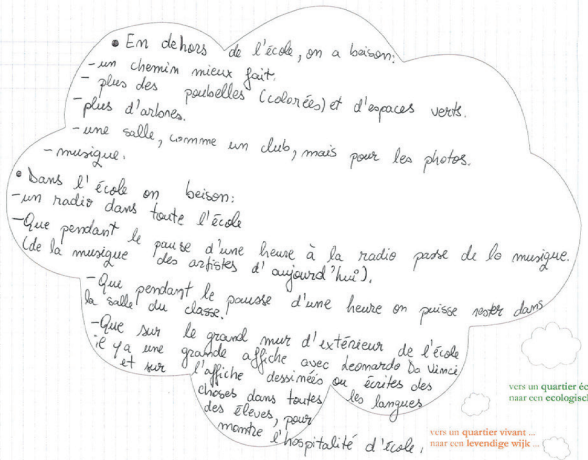 • En dehors de l'école, on a baison:
- un chemin mieux fait.
- plus des poubelles (colorées) et d'espaces verts.
- plus d'arbres.
- une salle, comme un club, mais pour les photos.
- musique.
• Dans l'école on beison:
- un radio dans toute l'école
- Que pendant le pause d'une heure à la radio passe de la musique.
(de la musique des artistes d'aujourd'hui).
- Que pendant le pausse d'une heure on puisse rester dans
la salle du classe.
- Que sur le grand mur d'extérieur de l'école
il y a une grande affiche avec Leonardo Da Vinci
et sur l'affiche dessineés ou écrites des
choses dans toutes les langues
des élèves, pour
montre l'hospitalité d'école.
vers un quartier éc
naar een ecologisch
vers un quartier vivant ...
naar een levendige wijk ...